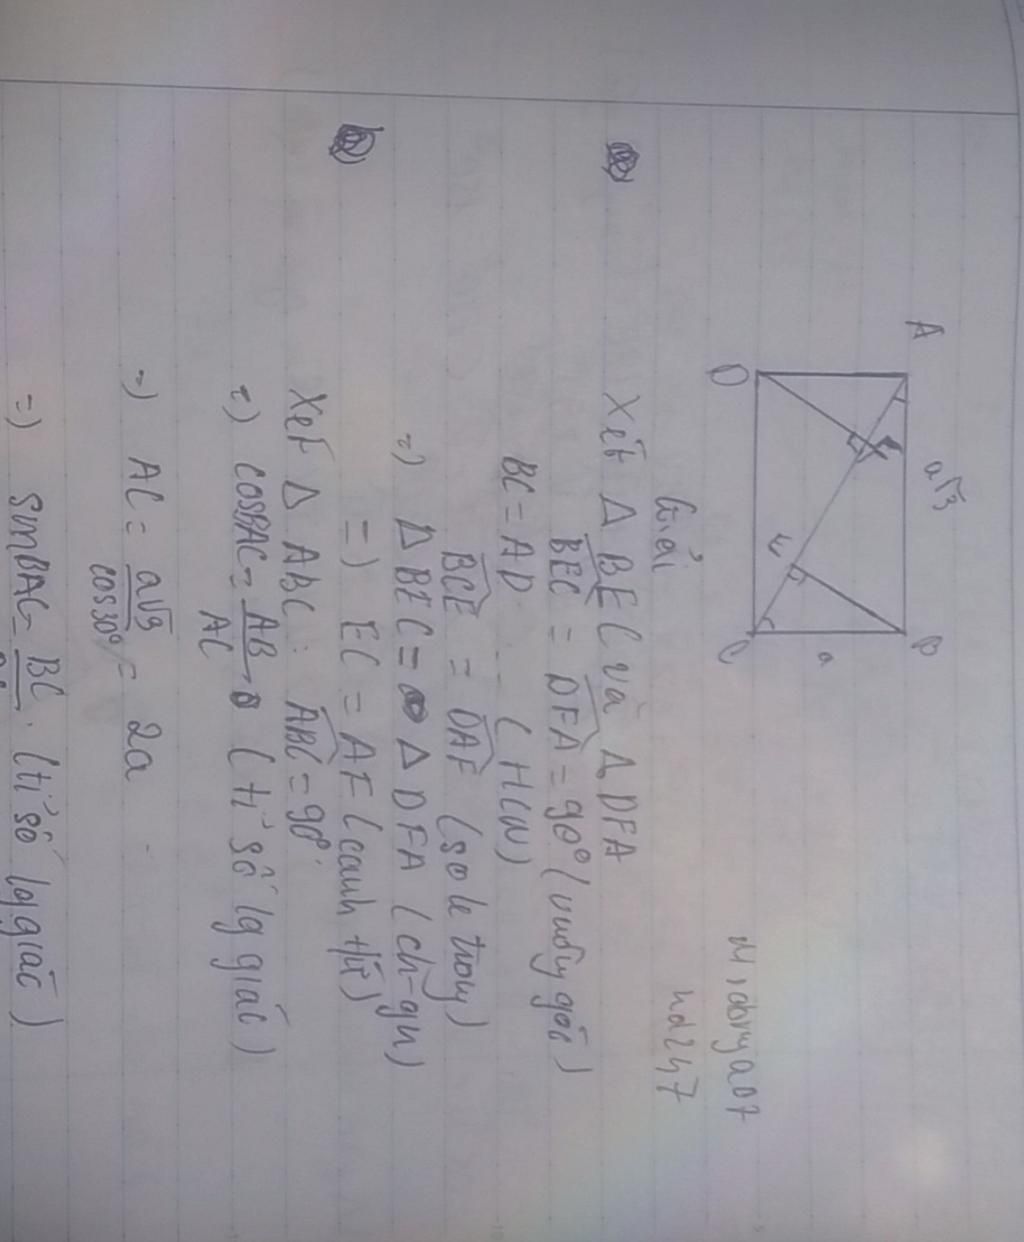 A
a√3
B
a
D
C
F
Giải
hd247
Xét Δ BEC và Δ DFA
BEC = DFA = 90° (vuông góc)
BC = AD (HCN)
BCE = DAF (so le trong)
=) Δ BEC = Δ DFA (ch-gn)
=) EC = AF (cạnh t/ứ)
Xét Δ ABC: ABC = 90°
=) cosBAC = AB/AC (tỉ số lg giác)
=) AC = a√3/cos30° = 2a
=) sinBAC = BC (tỉ số lg giác)